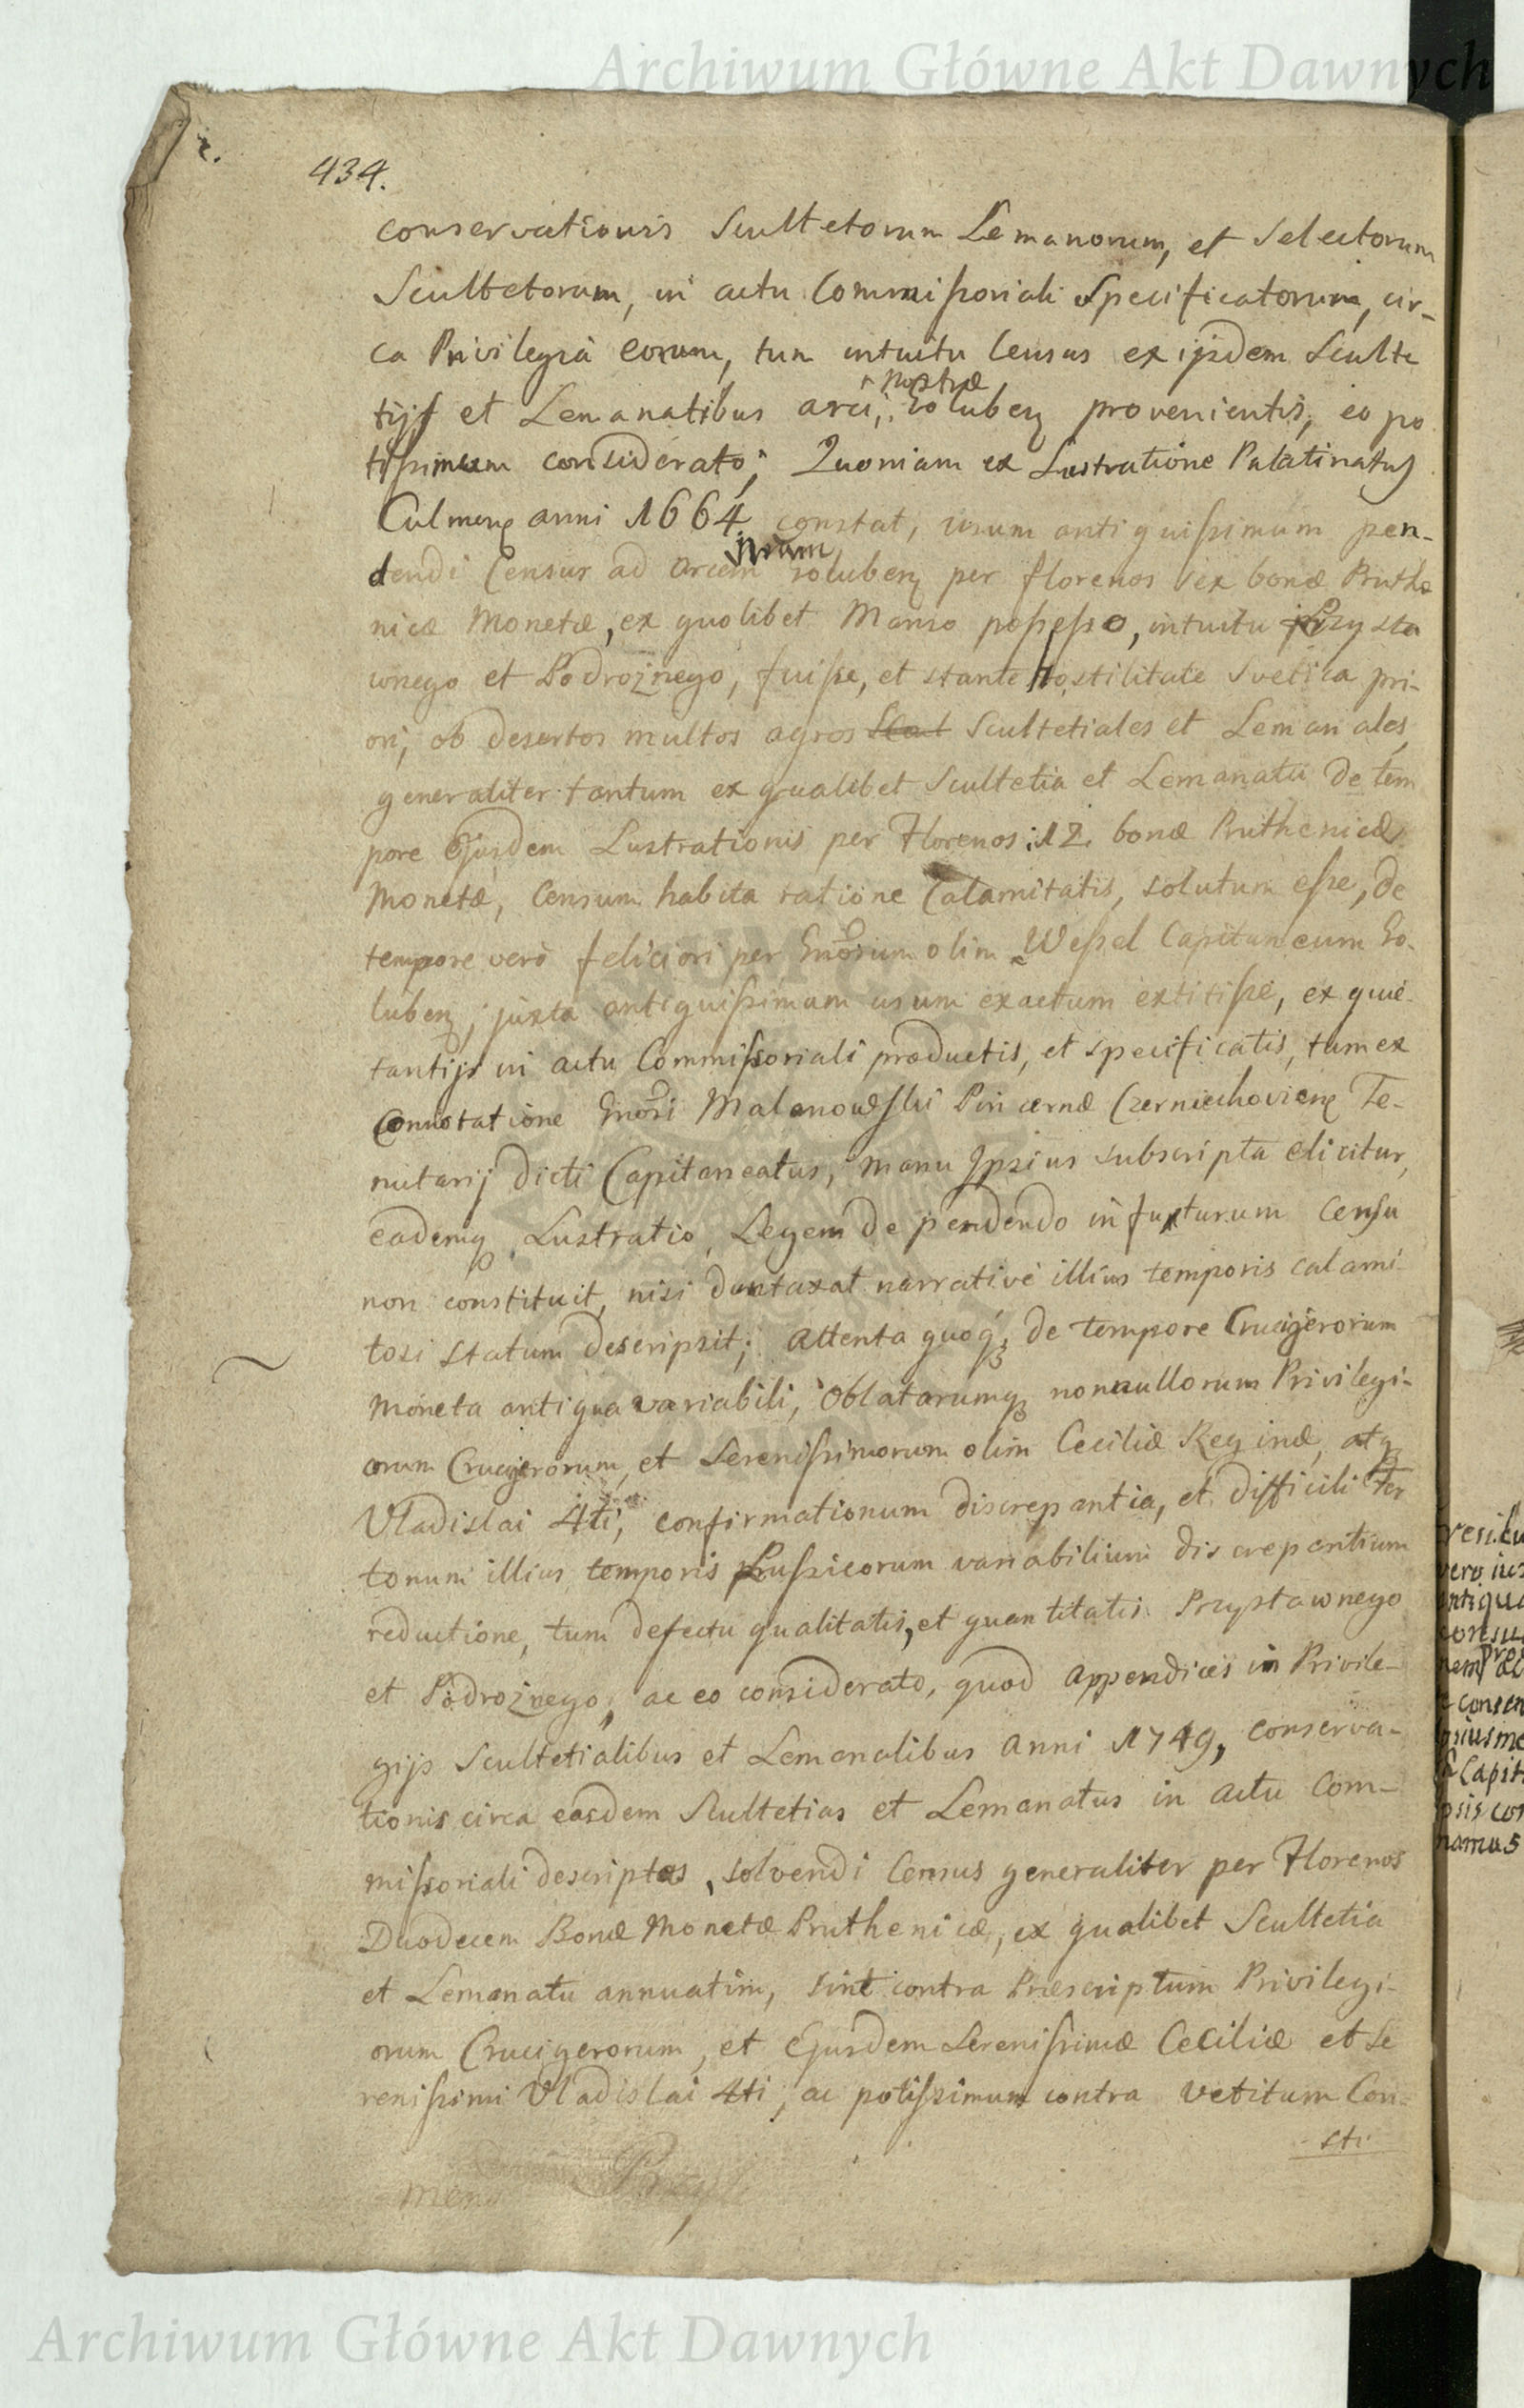 Archiwum Główne Akt Dawnych
434.
conservationis Scultetorum Lemanorum, et Selectorum
Scultetorum, in actu Commißoriali Specificatorum, cir-
ca Privilegia eorum, tum intuitu Census ex ijsdem Sculte
nostræ
tijs et Lemanatibus arci, Golubeṅ provenientis, eo po
tißimum considerato; Quoniam ex Lustratione Palatinatus
Culmenẽ anni 1664 constat, usum antiquißimum pen-
dendi Census ad arcem Golubenẽ per florenos sex bonæ Pruthe
nicæ Monetæ, ex quolibet Manso poßeßo, intuitu Przysta
wnego et Podrożnego, fuiße, et stante Hostilitate Svetica pri-
ori, ob desertos multos agros Scultetiales et Lemanales,
generaliter tantum ex qualibet Scultetia et Lemanatu de tem
pore Ejusdem Lustrationis per Florenos 12. bonæ Pruthenicæ
Monetæ, Censum habita ratione Calamitatis, solutum eße, de
tempore verò feliciori per Gñosum olim Weßel Capitaneum Go-
lubenẽ, juxta antiquißimum usum exactum extitiße, ex quie-
tantijs in actu Commißoriali productis, et specificatis, tum ex
Connotatione Gñosi Malanowski Pincernæ Czerniechovienẽ Te-
nutarij dicti Capitaneatus, manu Ipsius subscripta elicitur,
eademq Lustratio, Legem de pendendo in futurum Censu
non constituit, nisi duntaxat narrativè illius temporis calami-
tosi statum descripsit; Attenta quoq; de tempore Crucigerorum
moneta antiqua variabili, Oblatarumq nonnullorum Privilegi-
orum Crucigerorum, et Serenißimorum olim Ceciliæ Reginæ, atq
Vladislai 4ti, confirmationum discrepantia, et difficili fer
tonum illius temporis Prußicorum variabilium discrepantium
reductione, tum defectu qualitatis, et quantitatis Przystawnego
et Podrożnego, ac eo considerato, quod Appendices in Privile-
gijs Scultetialibus et Lemanalibus Anni 1749, conserva-
tionis circa easdem Scultetias et Lemanatus in actu Com-
mißoriali descriptas, solvendi Census generaliter per Florenos
Duodecem Bonæ Monetæ Pruthenicæ, ex qualibet Scultetia
et Lemanatu annuatim, sint contra Præscriptum Privilegi-
orum Crucigerorum, et Ejusdem Serenißimæ Ceciliæ et Se
renißimi Vladislai 4ti, ac potißimum contra vetitum Con-
sti
Archiwum Główne Akt Dawnych